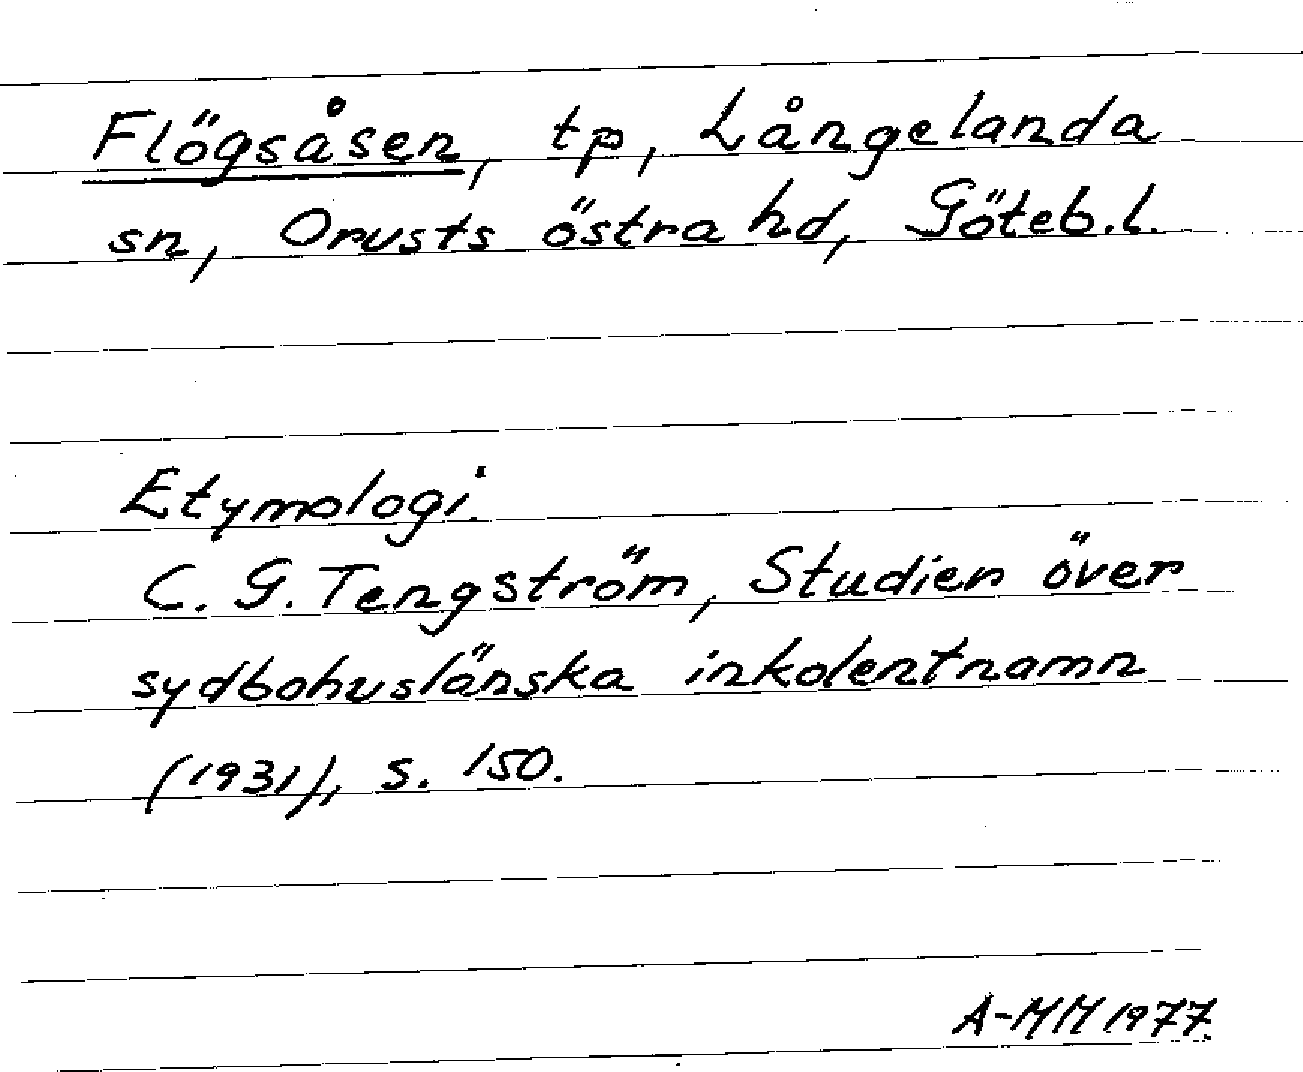 Flögsåsen, tp, Långelanda
sn, Orusts östra hd, Göteb.l.
Etymologi.
C. G. Tengström, Studier över
sydbohuslänska inkolentnamn
(1931), s. 150.
A-MM 1977.